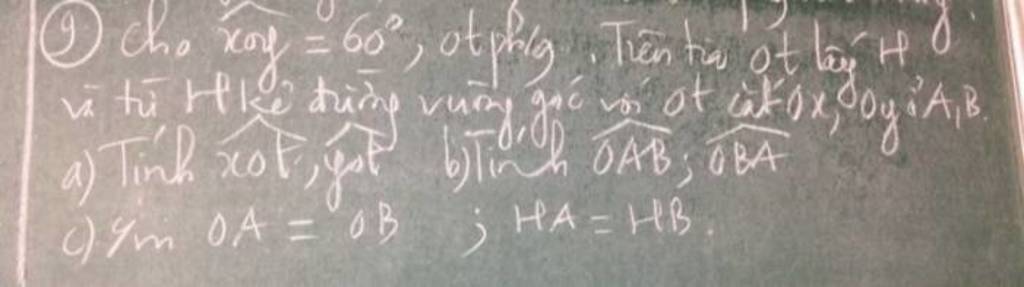 ⑨ Cho xoy = 60°, ot phg. Trên tia ot lấy H
và từ H kẻ đường vuông góc với ot cắt Ox, Oy ở A, B.
a) Tính xot, yot b) Tính OAB; OBA
c) OA = OB ; HA = HB.